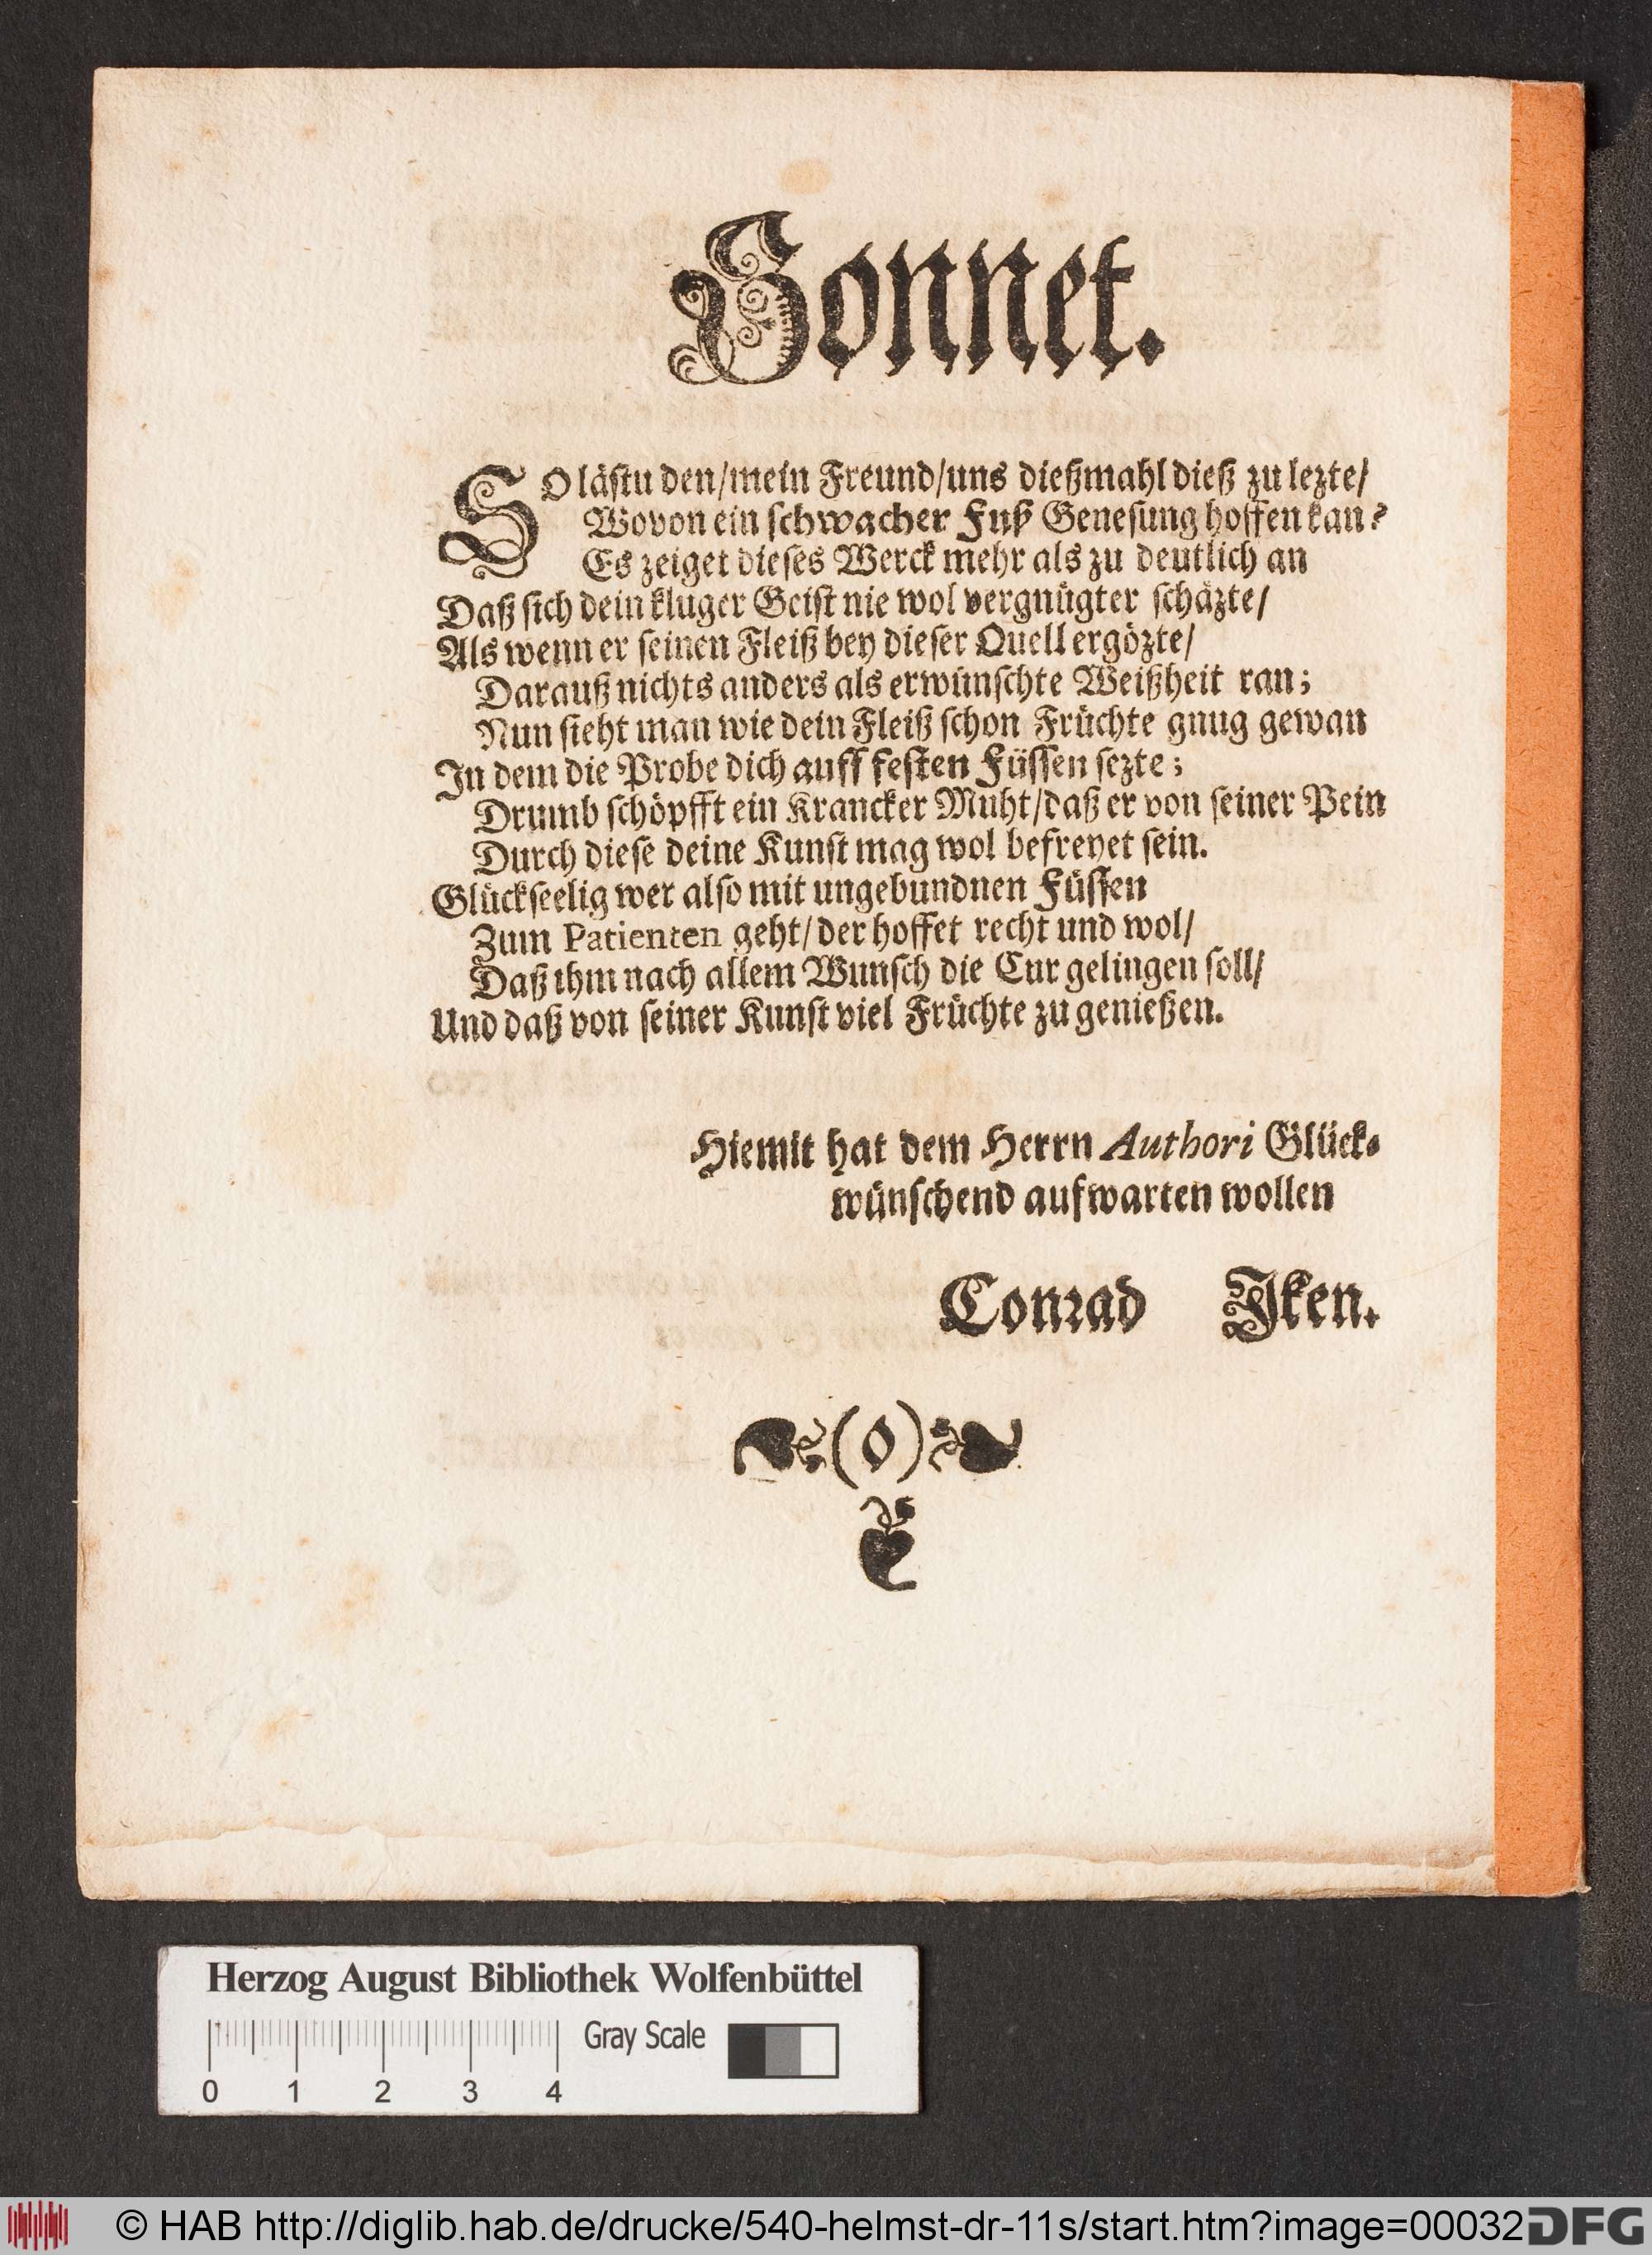 Sonnet.
SO lästu den/mein Freund/uns dießmahl dieß zu lezte/
Wovon ein schwacher Fuß Genesung hoffen kan?
Es zeiget dieses Werck mehr als zu deutlich an
Daß sich dein kluger Geist nie wol vergnügter schäzte/
Als wenn er seinen Fleiß bey dieser Quell ergözte/
Darauß nichts anders als erwünschte Weißheit ran;
Nun sieht man wie dein Fleiß schon Früchte gnug gewan
In dem die Probe dich auff festen Füssen sezte;
Drumb schöpfft ein Krancker Muht/daß er von seiner Pein
Durch diese deine Kunst mag wol befreyet sein.
Glückseelig wer also mit ungebundnen Füssen
Zum Patienten geht/der hoffet recht und wol/
Daß ihm nach allem Wunsch die Cur gelingen soll/
Und daß von seiner Kunst viel Früchte zu genießen.
Hiemit hat dem Herrn Authori Glück-
wünschend aufwarten wollen
Conrad Iken.
(o)
Herzog August Bibliothek Wolfenbüttel
Gray Scale
0 1 2 3 4
© HAB http://diglib.hab.de/drucke/540-helmst-dr-11s/start.htm?image=00032 DFG